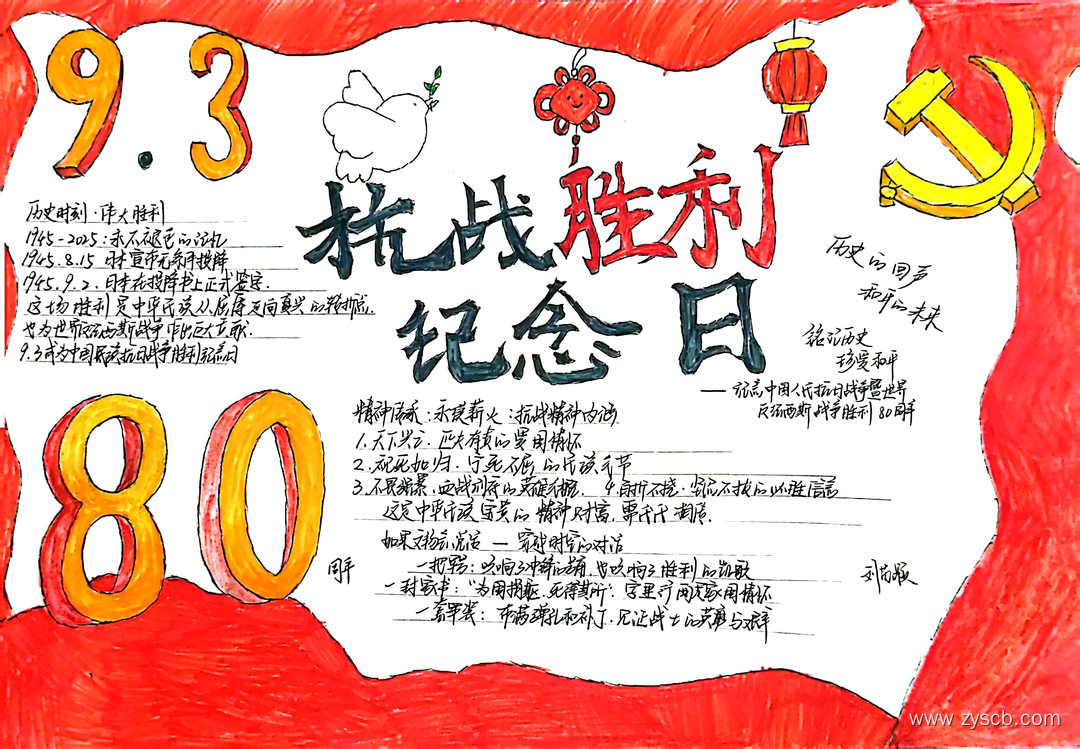 9.3
抗战胜利
纪念日
历史时刻·伟大胜利
1945-2025:永不褪色的记忆
1945.8.15 日本宣布无条件投降
1945.9.2.日本在投降书上正式签字.
这场胜利是中华民族从屈辱走向复兴的转折点.
也为世界反法西斯战争作出巨大贡献.
9.3成为中国民族抗日战争胜利纪念日
历史的回声
和平的未来
铭记历史
珍爱和平
——致高中国人民抗日战争暨世界
反法西斯战争胜利80周年
80
周年
精神传承:永续薪火:抗战精神内涵
1.天下兴亡.匹夫有责的爱国情怀
2.视死如归.宁死不屈的民族气节
3.不畏强暴.血战到底的英雄气概. 4.百折不挠.坚忍不拔的必胜信念
这是中华民族宝贵的精神财富.
如果文物会说话——穿越时空的对话
一把军号:吹响了冲锋的号角,也吹响了胜利的凯歌
一封家书:“为国捐躯.死得其所”.字里行间是家国情怀
一套军装:布满弹孔和补丁.见证战士的英勇与艰辛
www.zyscb.com